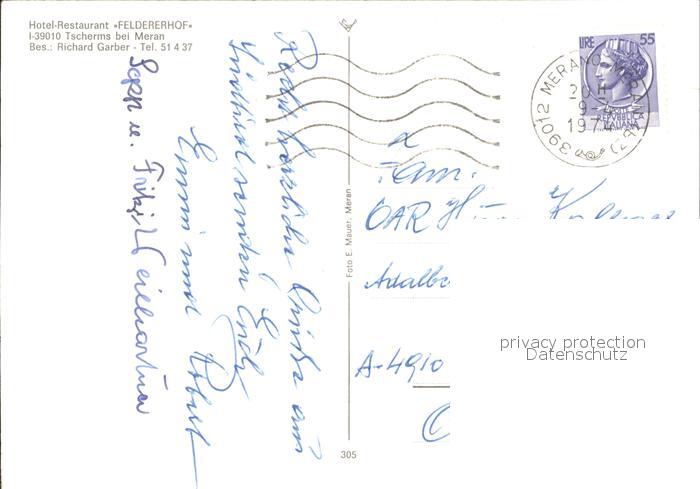 Hotel-Restaurant «FELDERERHOF»
I-39010 Tscherms bei Meran
Bes.: Richard Garber - Tel. 51 4 37
Recht herzliche Grüße aus
Südtirol senden Euch
Emmi und
Sepp u. Fritzi
Foto E. Mauer, Meran
305
LIRE 55
REPVBBLICA
ITALIANA
39012 MERANO MERAN (BZ)
20 H
9-
197
Fam.
OAR
Adalbe
A-4910
privacy protection
Datenschutz